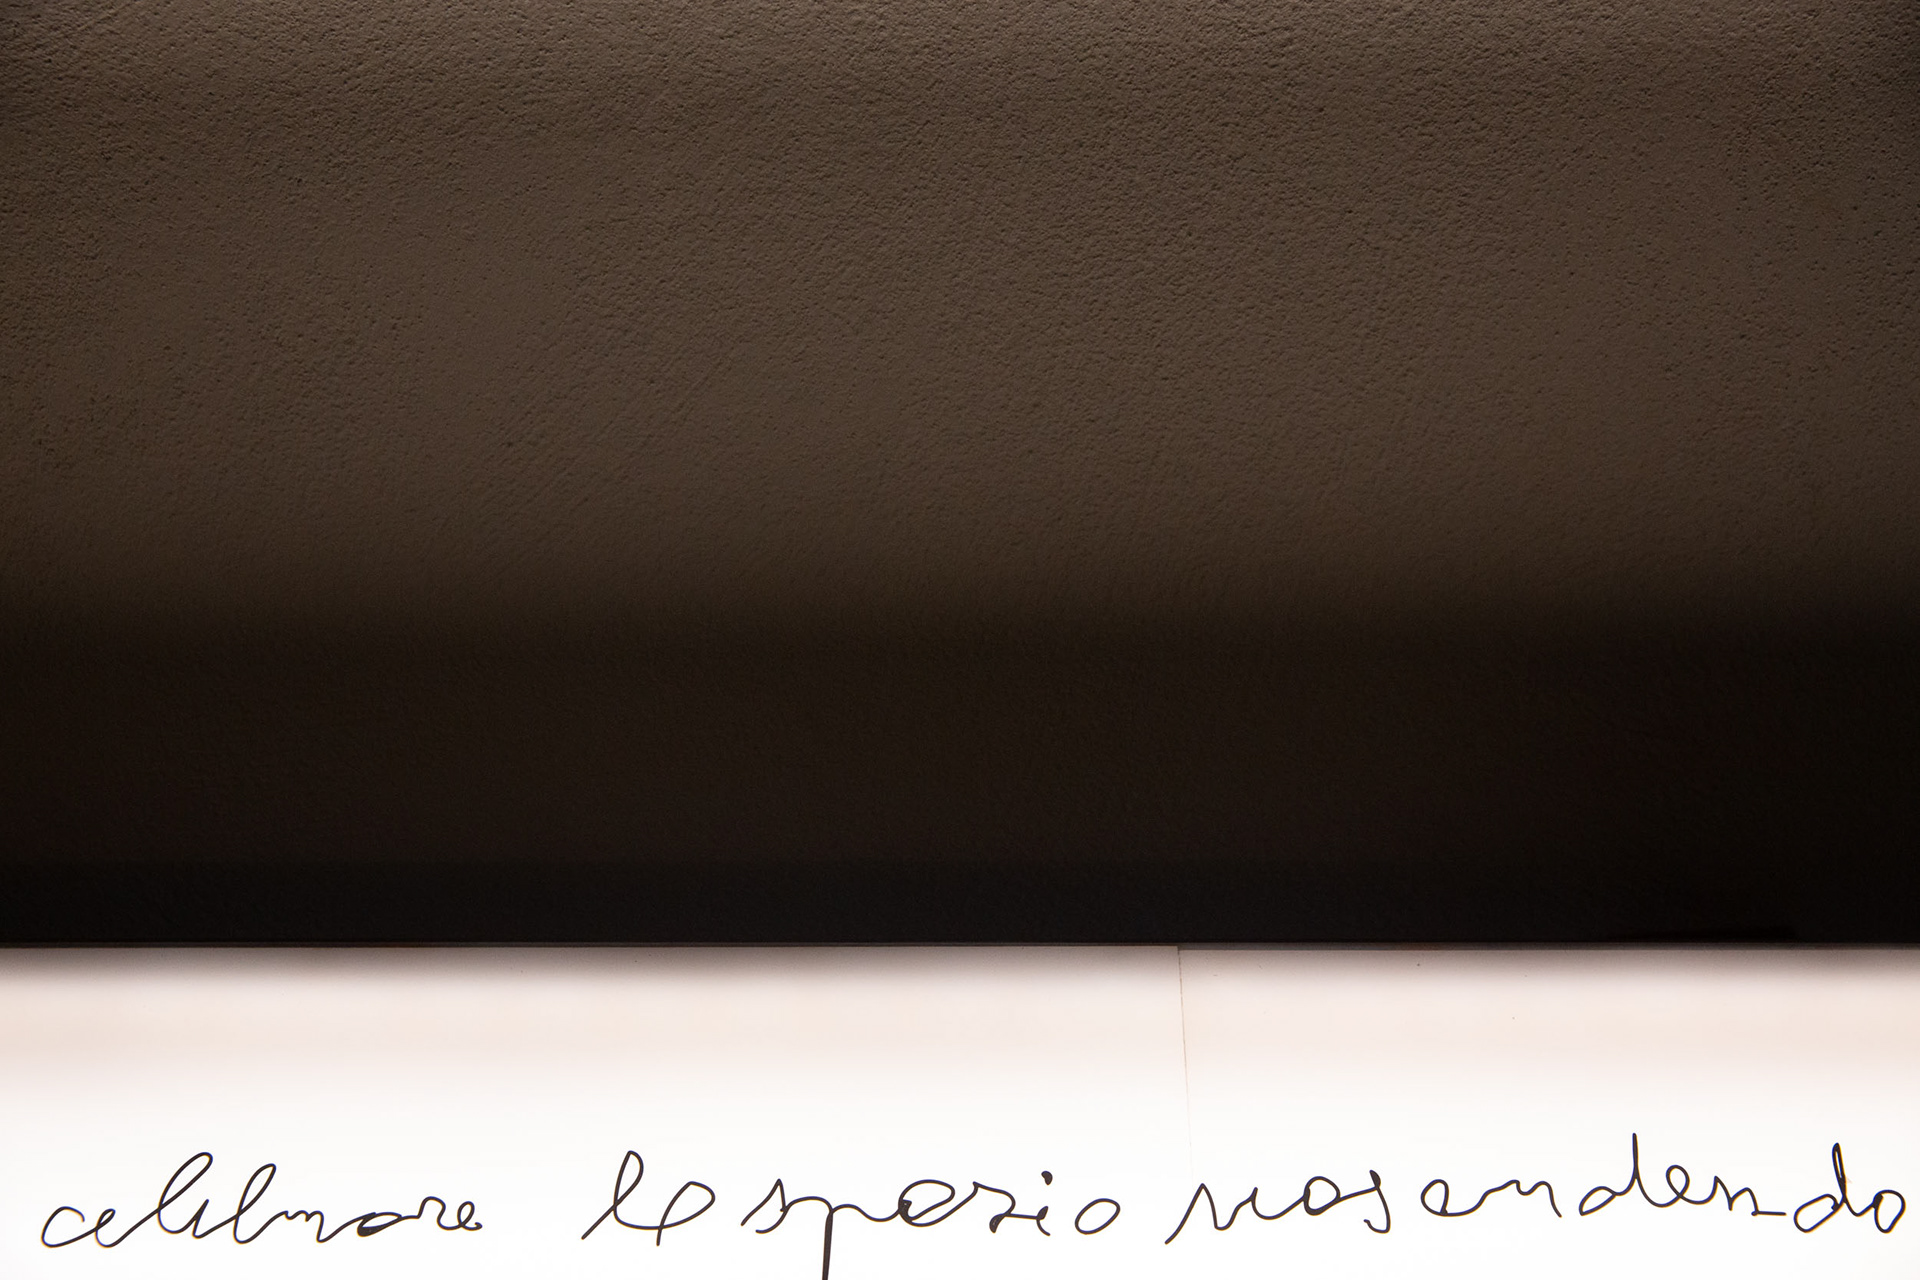 celebrare lo spazio nascondendo